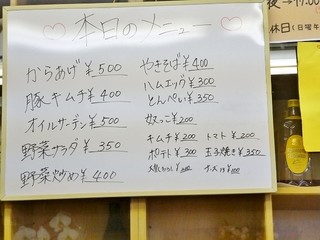 本日のメニュー
からあげ ¥500
豚キムチ ¥400
オイルサーデン ¥500
野菜サラダ ¥350
野菜炒め ¥400
やきそば ¥400
ハムエッグ ¥300
とんぺい ¥350
奴っこ ¥200
キムチ ¥200 トマト ¥200
ポテト ¥300 玉子焼き ¥350
休日(日曜